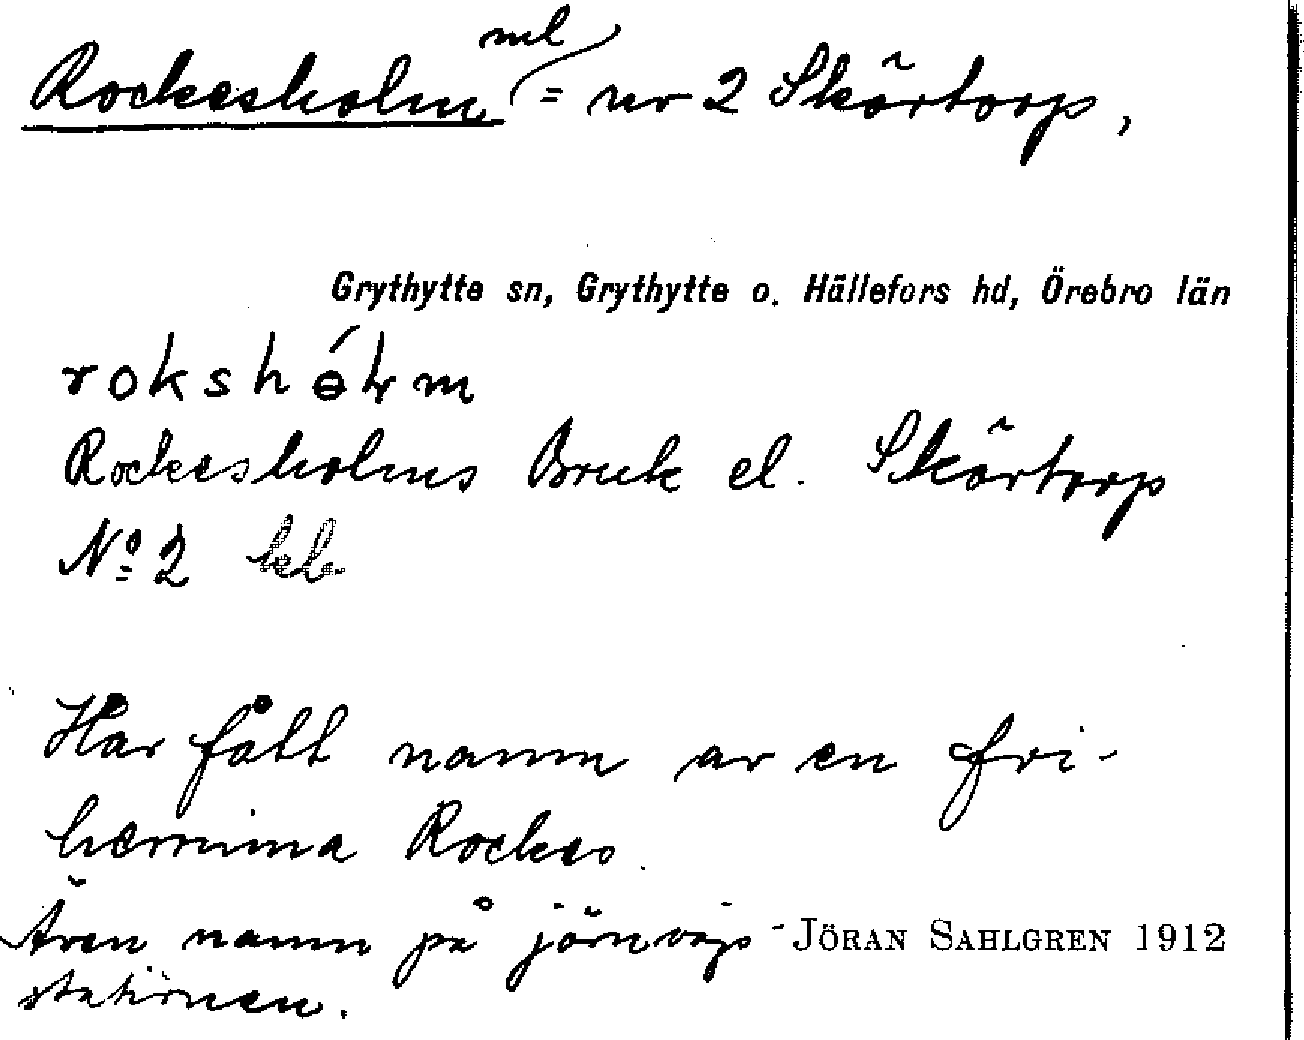 Rockesholm ml = nr 2 Skärtorp,
Grythytte sn, Grythytte o. Hällefors hd, Örebro län
Rockesholms Bruk el. Skärtorp
No 2
Har fått namn av en fri-
herrinna Rockes.
Även namn på järnvägs-
stationen.
JÖRAN SAHLGREN 1912